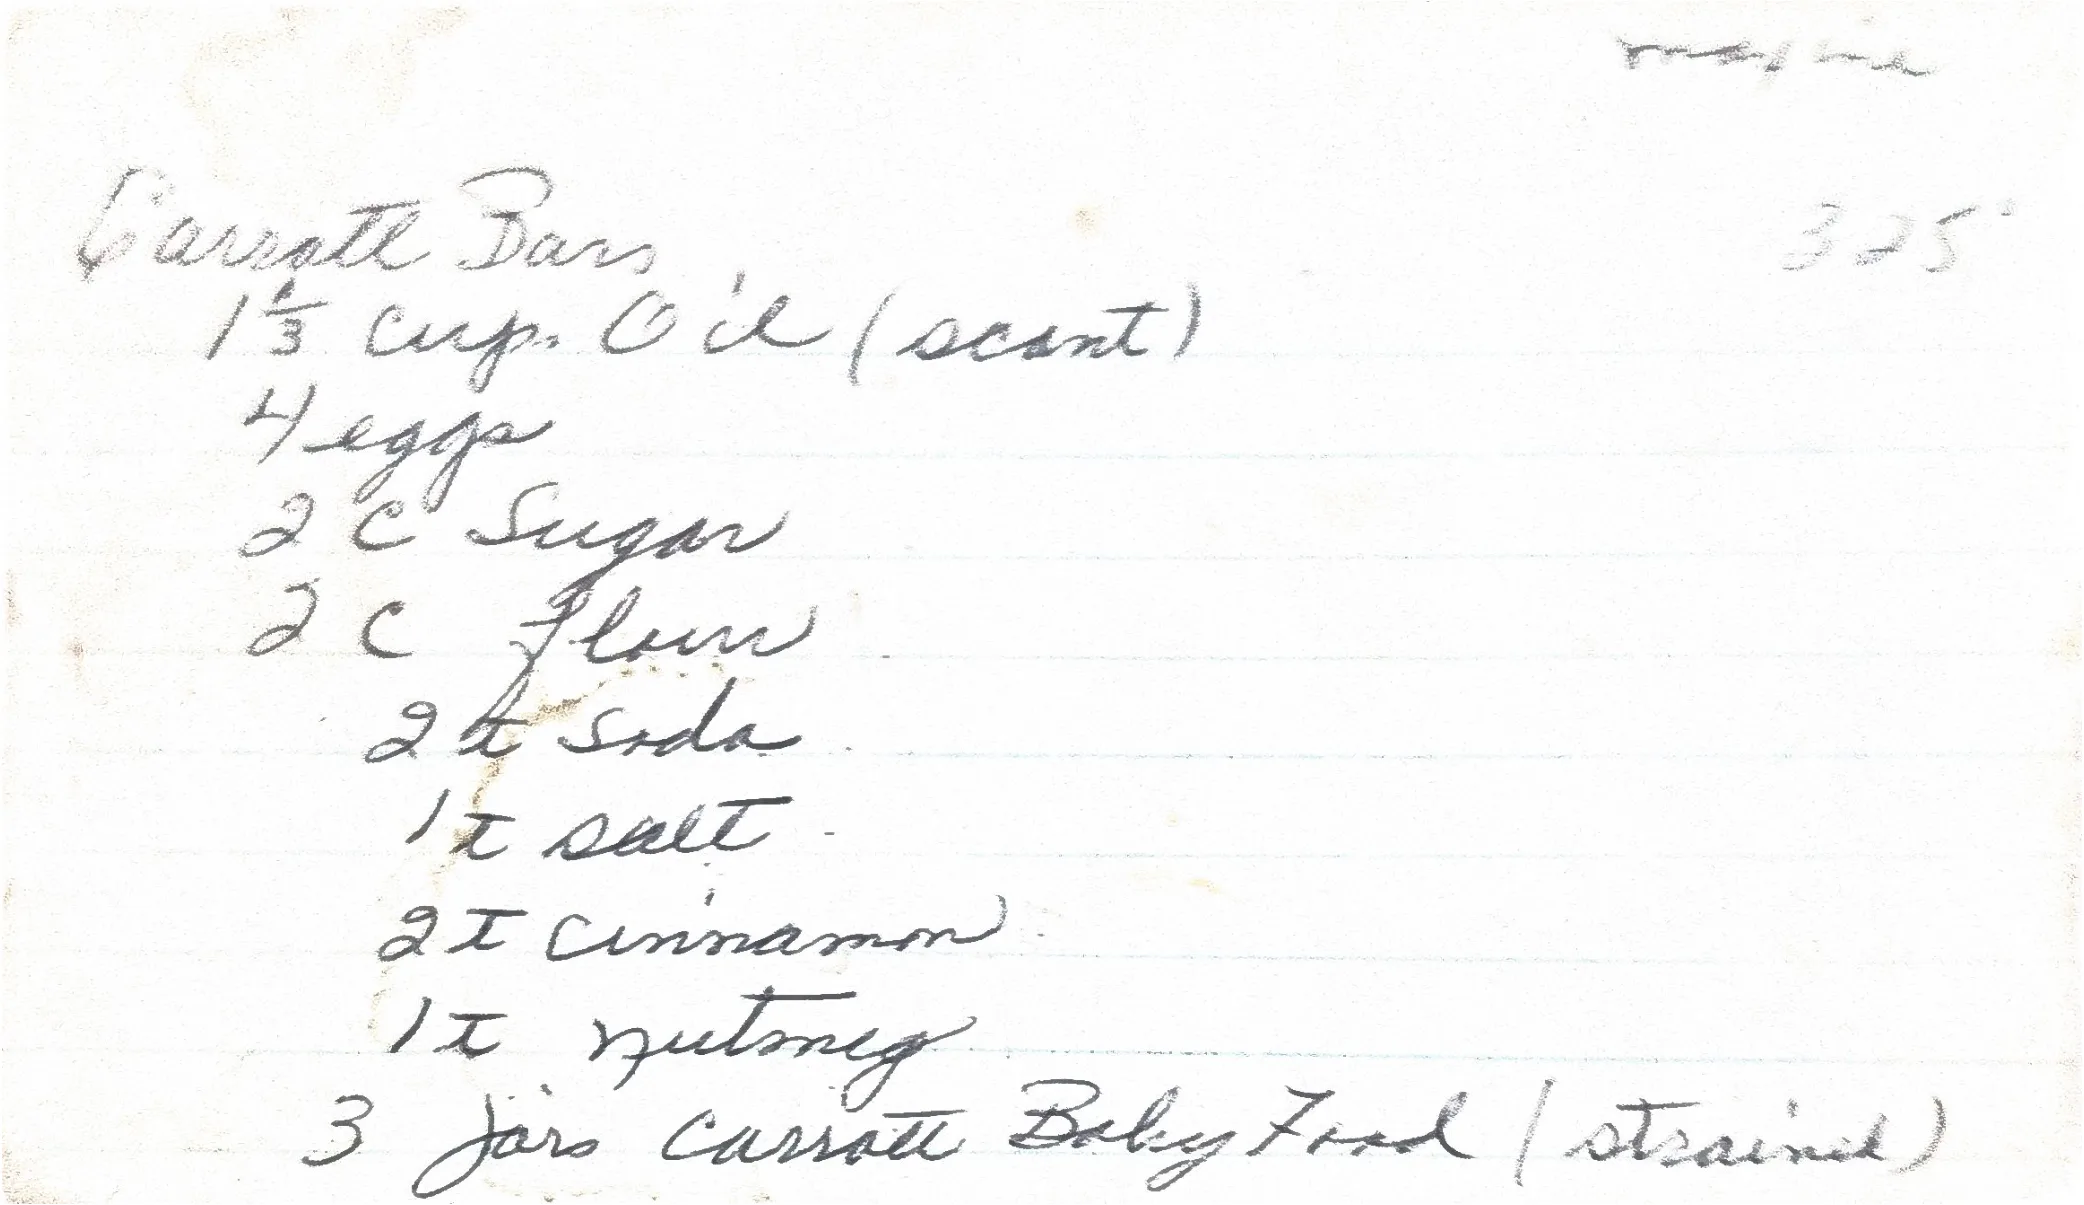 Maxine
Carrott Bars 325°
1 1/3 cup. Oil (scant)
4 eggs
2 C Sugar
2 C Flour
2 t Soda
1 t salt
2 t Cinnamon
1 t nutmeg
3 jars Carrott Baby Food (strained)